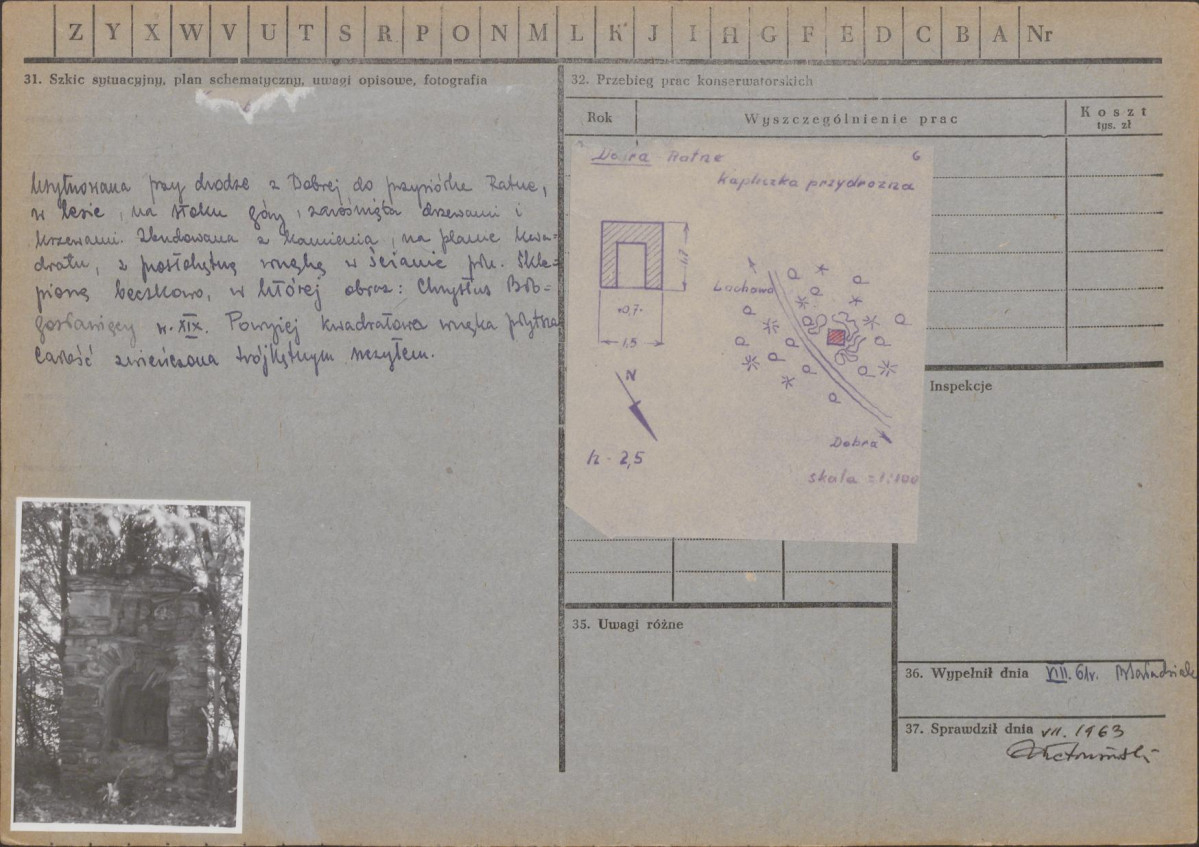 Z Y X W V U T S R P O N M L K J I H G F E D C B A Nr
31. Szkic sytuacyjny, plan schematyczny, uwagi opisowe, fotografia
Usytuowana przy drodze z Dobrej do przysiółka Ratne,
w lesie, na stoku góry, zarośnięta drzewami i
krzewami. Zbudowana z kamienia, na planie kwa-
dratu, z prostokątną wnęką w ścianie płn. skle-
pioną beczkowo, w której obraz: Chrystus Bło-
gosławiący w. XIX. Powyżej kwadratowa wnęka płytsza
Całość zwieńczona trójkątnym szczytem.
32. Przebieg prac konserwatorskich
Rok
Wyszczególnienie prac
Koszt
tys. zł
Dobra Ratne 6
kapliczka przydrożna
1,2
0,7
1,5
N
h - 2,5
Lachowa
Dobra
skala = 1:100
Inspekcje
35. Uwagi różne
36. Wypełnił dnia VIII. 61r.
37. Sprawdził dnia VII. 1963